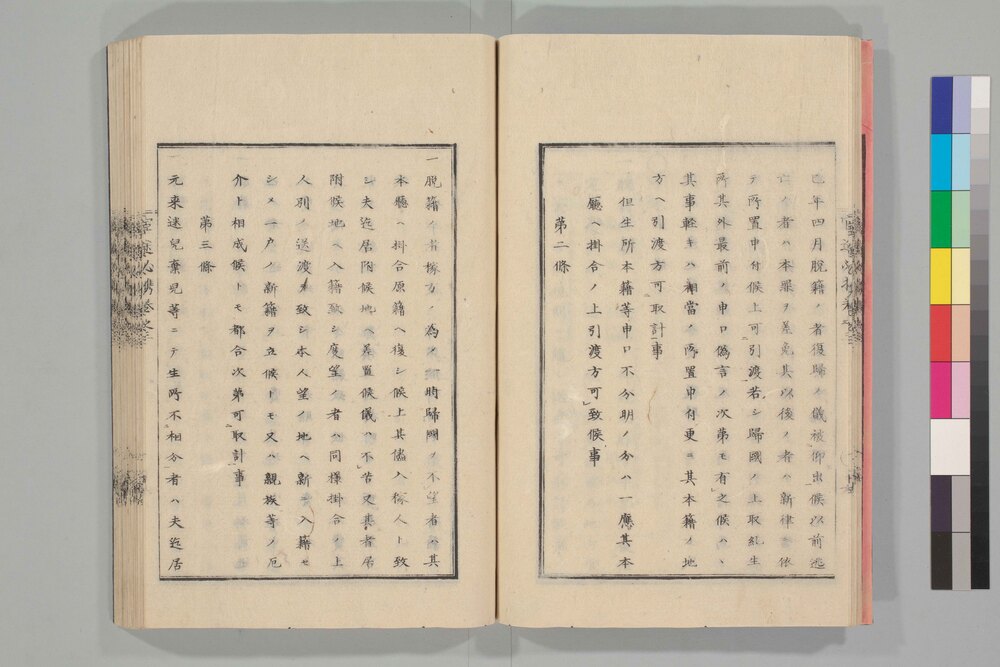 巳年四月脱籍ノ者復帰ノ儀被仰出候以前逃
亡ノ者ハ本罪ヲ差免其以後ノ者ハ新律ニ依
テ所置申付候上可引渡若シ帰國ノ上取糺生
所其外最前ノ申口偽言ノ次第モ有之候ハヽ
其事軽キハ相當ノ所置申付更ニ其本籍ノ地
方ヘ引渡方可取計事
但生所本籍等申口不分明ノ分ハ一應其本
廳ヘ掛合ノ上引渡方可致候事
第二條
一脱籍ノ者稼方ノ為メ 時帰國ヲ不望者ハ其
本廳ヘ掛合原籍ヘ復シ候上其儘入稼人ト致
シ夫迄居附候地ヘ差置候儀ハ不苦又其者居
附候地ヘ入籍致シ度望ノ者ハ同様掛合ノ上
人別ノ送渡ヲ致シ本人望ノ地ヘ新ニ入籍セ
シメ一戸ノ新籍ヲ立候トモ又ハ親族等ノ厄
介ト相成候トモ都合次第可取計事
第三條
一元来迷兒棄兒等ニテ生所不相分者ハ夫迄居